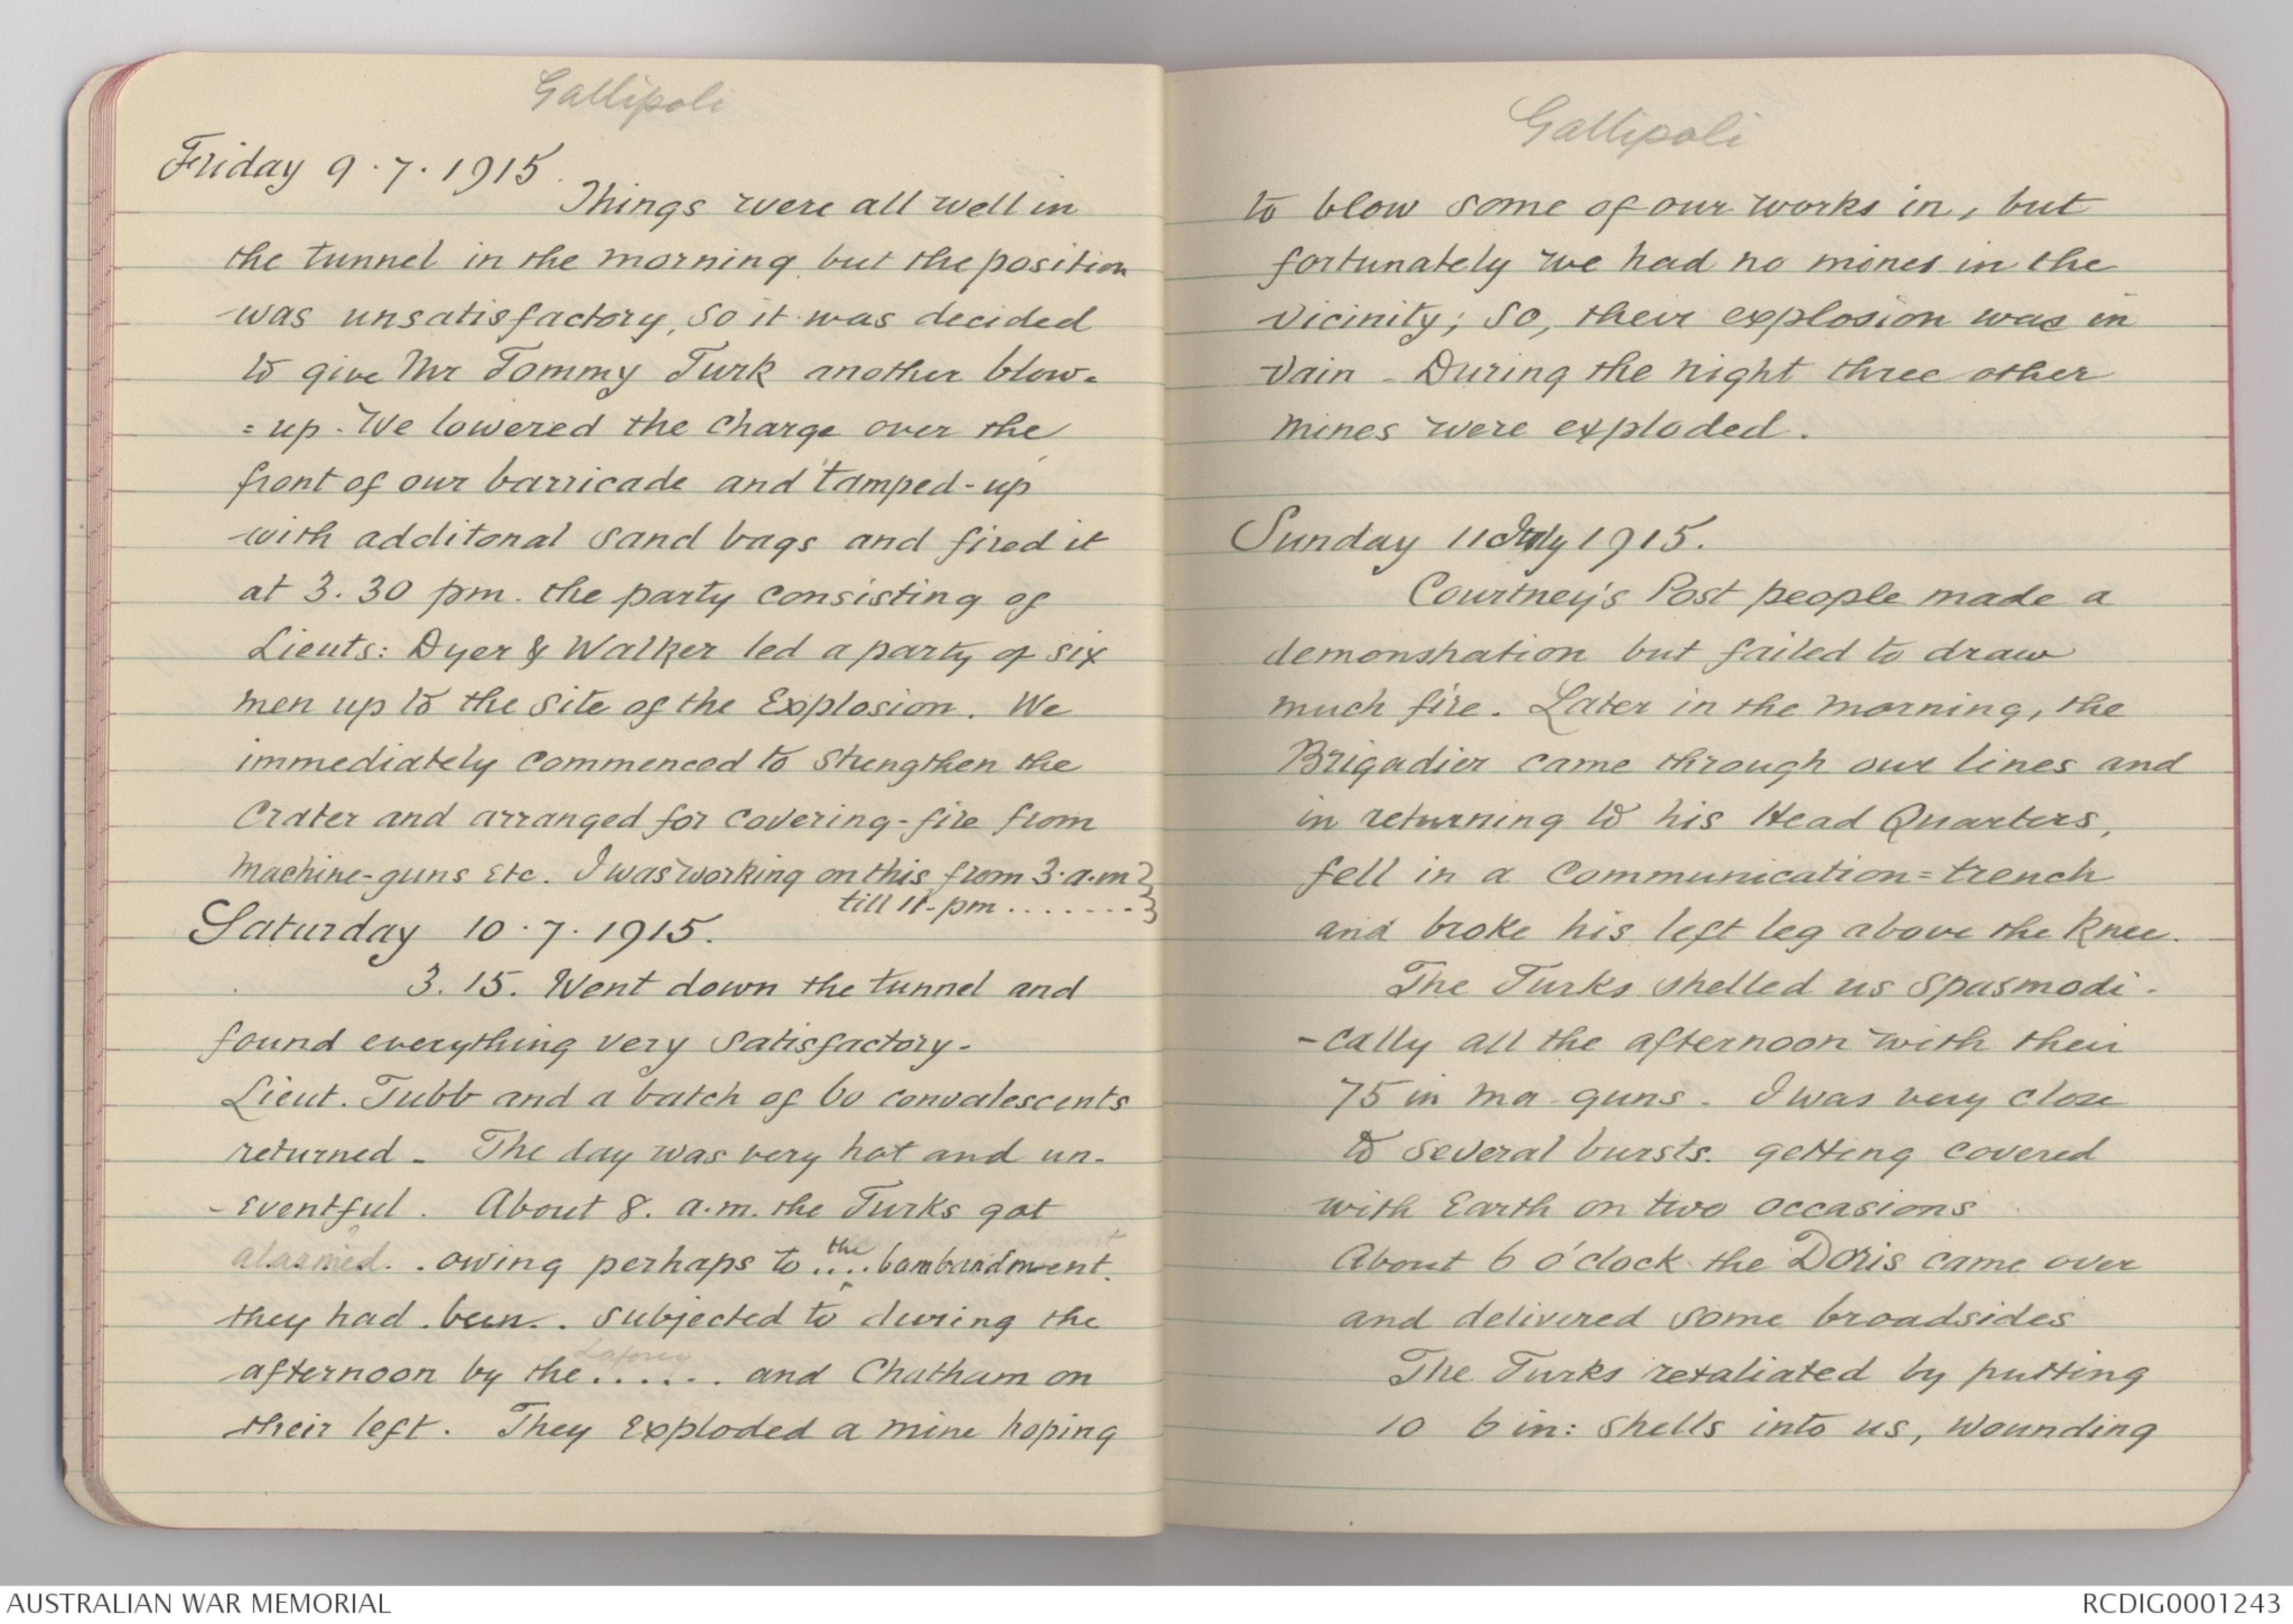 Gallipoli
Friday 9.7.1915.
Things were all well in
the tunnel in the morning but the position
was unsatisfactory, so it was decided
to give Mr Tommy Turk another blow-
=up. We lowered the charge over the
front of our barricade and tamped-up
with additonal sand bags and fired it
at 3.30 pm. the party consisting of
Lieuts: Dyer & Walker led a party of six
men up to the site of the Explosion. We
immediately commenced to strengthen the
Crater and arranged for covering-fire from
machine-guns Etc. I was working on this from 3.a.m }
till 11.pm ....... }
Saturday 10.7.1915.
3.15. Went down the tunnel and
found everything very satisfactory-
Lieut. Tubb and a batch of 60 convalescents
returned - The day was very hot and un-
-eventful. About 8. a.m. the Turks got
alarmed. . owing perhaps to the .... bombardment.
they had . been. . subjected to during the
afternoon by the Laforey ...... and Chatham on
their left. They Exploded a mine hoping
Gallipoli
to blow some of our works in, but
fortunately we had no mines in the
vicinity; So, their explosion was in
vain - During the night three other
mines were exploded.
Sunday 11 July 1915.
Courtney's Post people made a
demonstration but failed to draw
much fire. Later in the morning, the
Brigadier came through our lines and
in returning to his Head Quarters,
fell in a Communication=trench
and broke his left leg above the knee.
The Turks shelled us spasmodi-
-cally all the afternoon with their
75 in ma-guns - I was very close
to several bursts. getting covered
with Earth on two occasions
About 6 o'clock the Doris came over
and delivered some broadsides
The Turks retaliated by putting
10 6 in: shells into us, wounding
AUSTRALIAN WAR MEMORIAL
RCDIG0001243